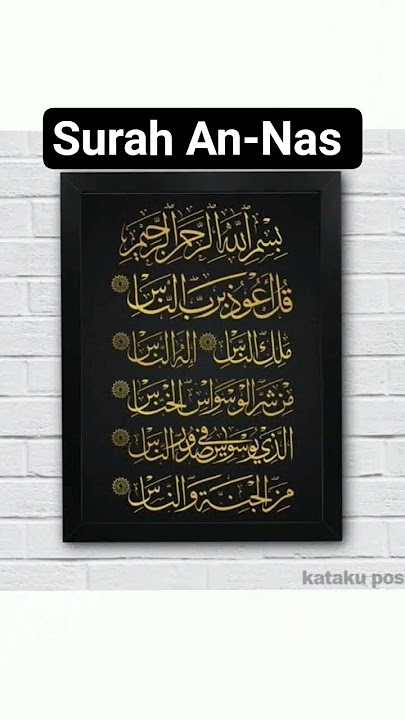 Surah An-Nas
بِسْمِ اللَّهِ الرَّحْمَنِ الرَّحِيمِ
قُلْ أَعُوذُ بِرَبِّ النَّاسِ
مَلِكِ النَّاسِ إِلَهِ النَّاسِ
مِنْ شَرِّ الْوَسْوَاسِ الْخَنَّاسِ
الَّذِي يُوَسْوِسُ فِي صُدُورِ النَّاسِ
مِنَ الْجِنَّةِ وَالنَّاسِ
kataku pos